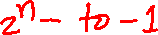 2ⁿ - to - 1